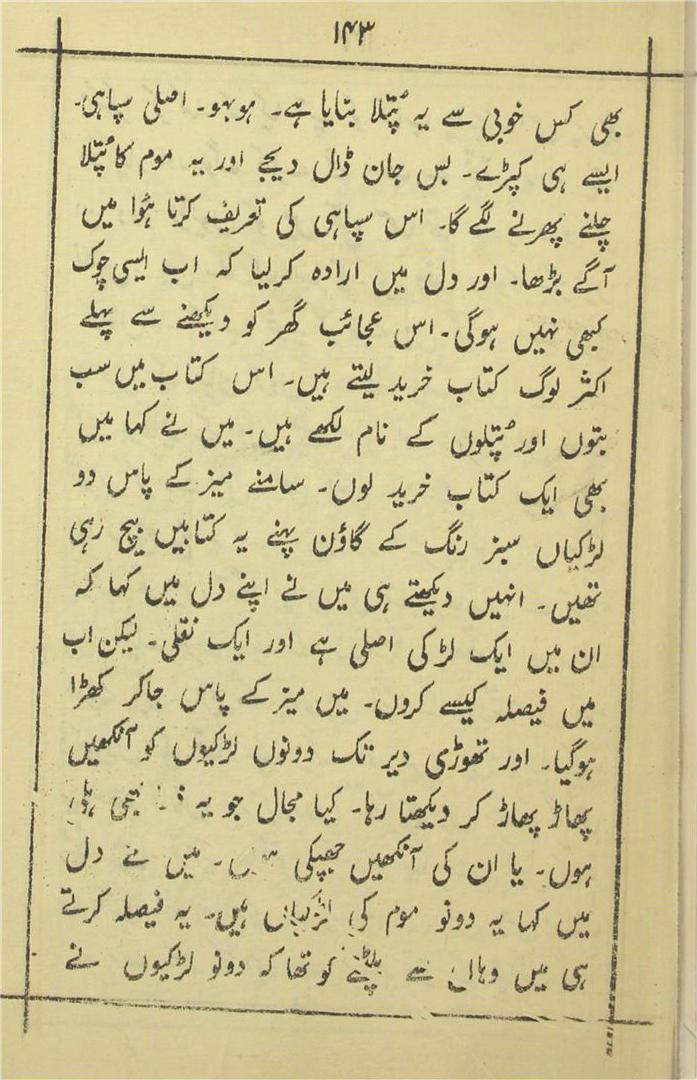 ۱۴۳
بھی کس خوبی سے یہ پُتلا بنایا ہے۔ ہوبہو۔ اصلی سپاہی۔
ایسے ہی کپڑے۔ بس جان ڈال دیجے اور یہ موم کا پُتلا
چلنے پھرنے لگے گا۔ اس سپاہی کی تعریف کرتا ہُوا میں
آگے بڑھا۔ اور دل میں ارادہ کرلیا کہ اب ایسی چوک
کبھی نہیں ہوگی۔ اس عجائب گھر کو دیکھنے سے پہلے
اکثر لوگ کتاب خرید لیتے ہیں۔ اس کتاب میں سب
بتوں اور پُتلوں کے نام لکھے ہیں۔ میں نے کہا میں
بھی ایک کتاب خرید لوں۔ سامنے میز کے پاس دو
لڑکیاں سبز رنگ کے گاؤن پہنے یہ کتابیں بیچ رہی
تھیں۔ انہیں دیکھتے ہی میں نے اپنے دل میں کہا کہ
ان میں ایک لڑکی اصلی ہے اور ایک نقلی۔ لیکن اب
میں فیصلہ کیسے کروں۔ میں میز کے پاس جاکر کھڑا
ہوگیا۔ اور تھوڑی دیر تک دونوں لڑکیوں کو آنکھیں
پھاڑ پھاڑ کر دیکھتا رہا۔ کیا مجال جو یہ
ہوں۔ یا ان کی آنکھیں جھپکی ہوں۔ میں نے دل
میں کہا یہ دونو موم کی لڑکیاں ہیں۔ یہ فیصلہ کرتے
ہی میں وہاں سے پلٹنے کو تھا کہ دونو لڑکیوں نے